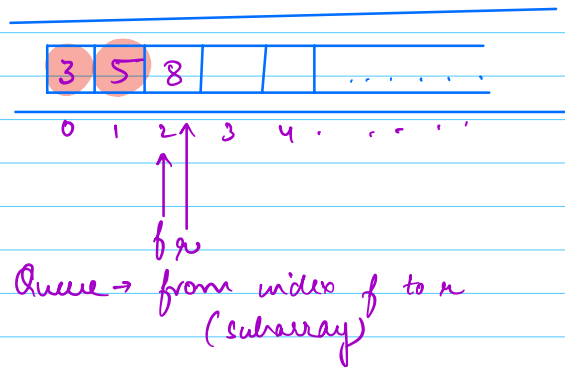 3 5 8 . . . . . .
0 1 2 3 4 . . . . .
f r
Queue → from index f to r
(subarray)